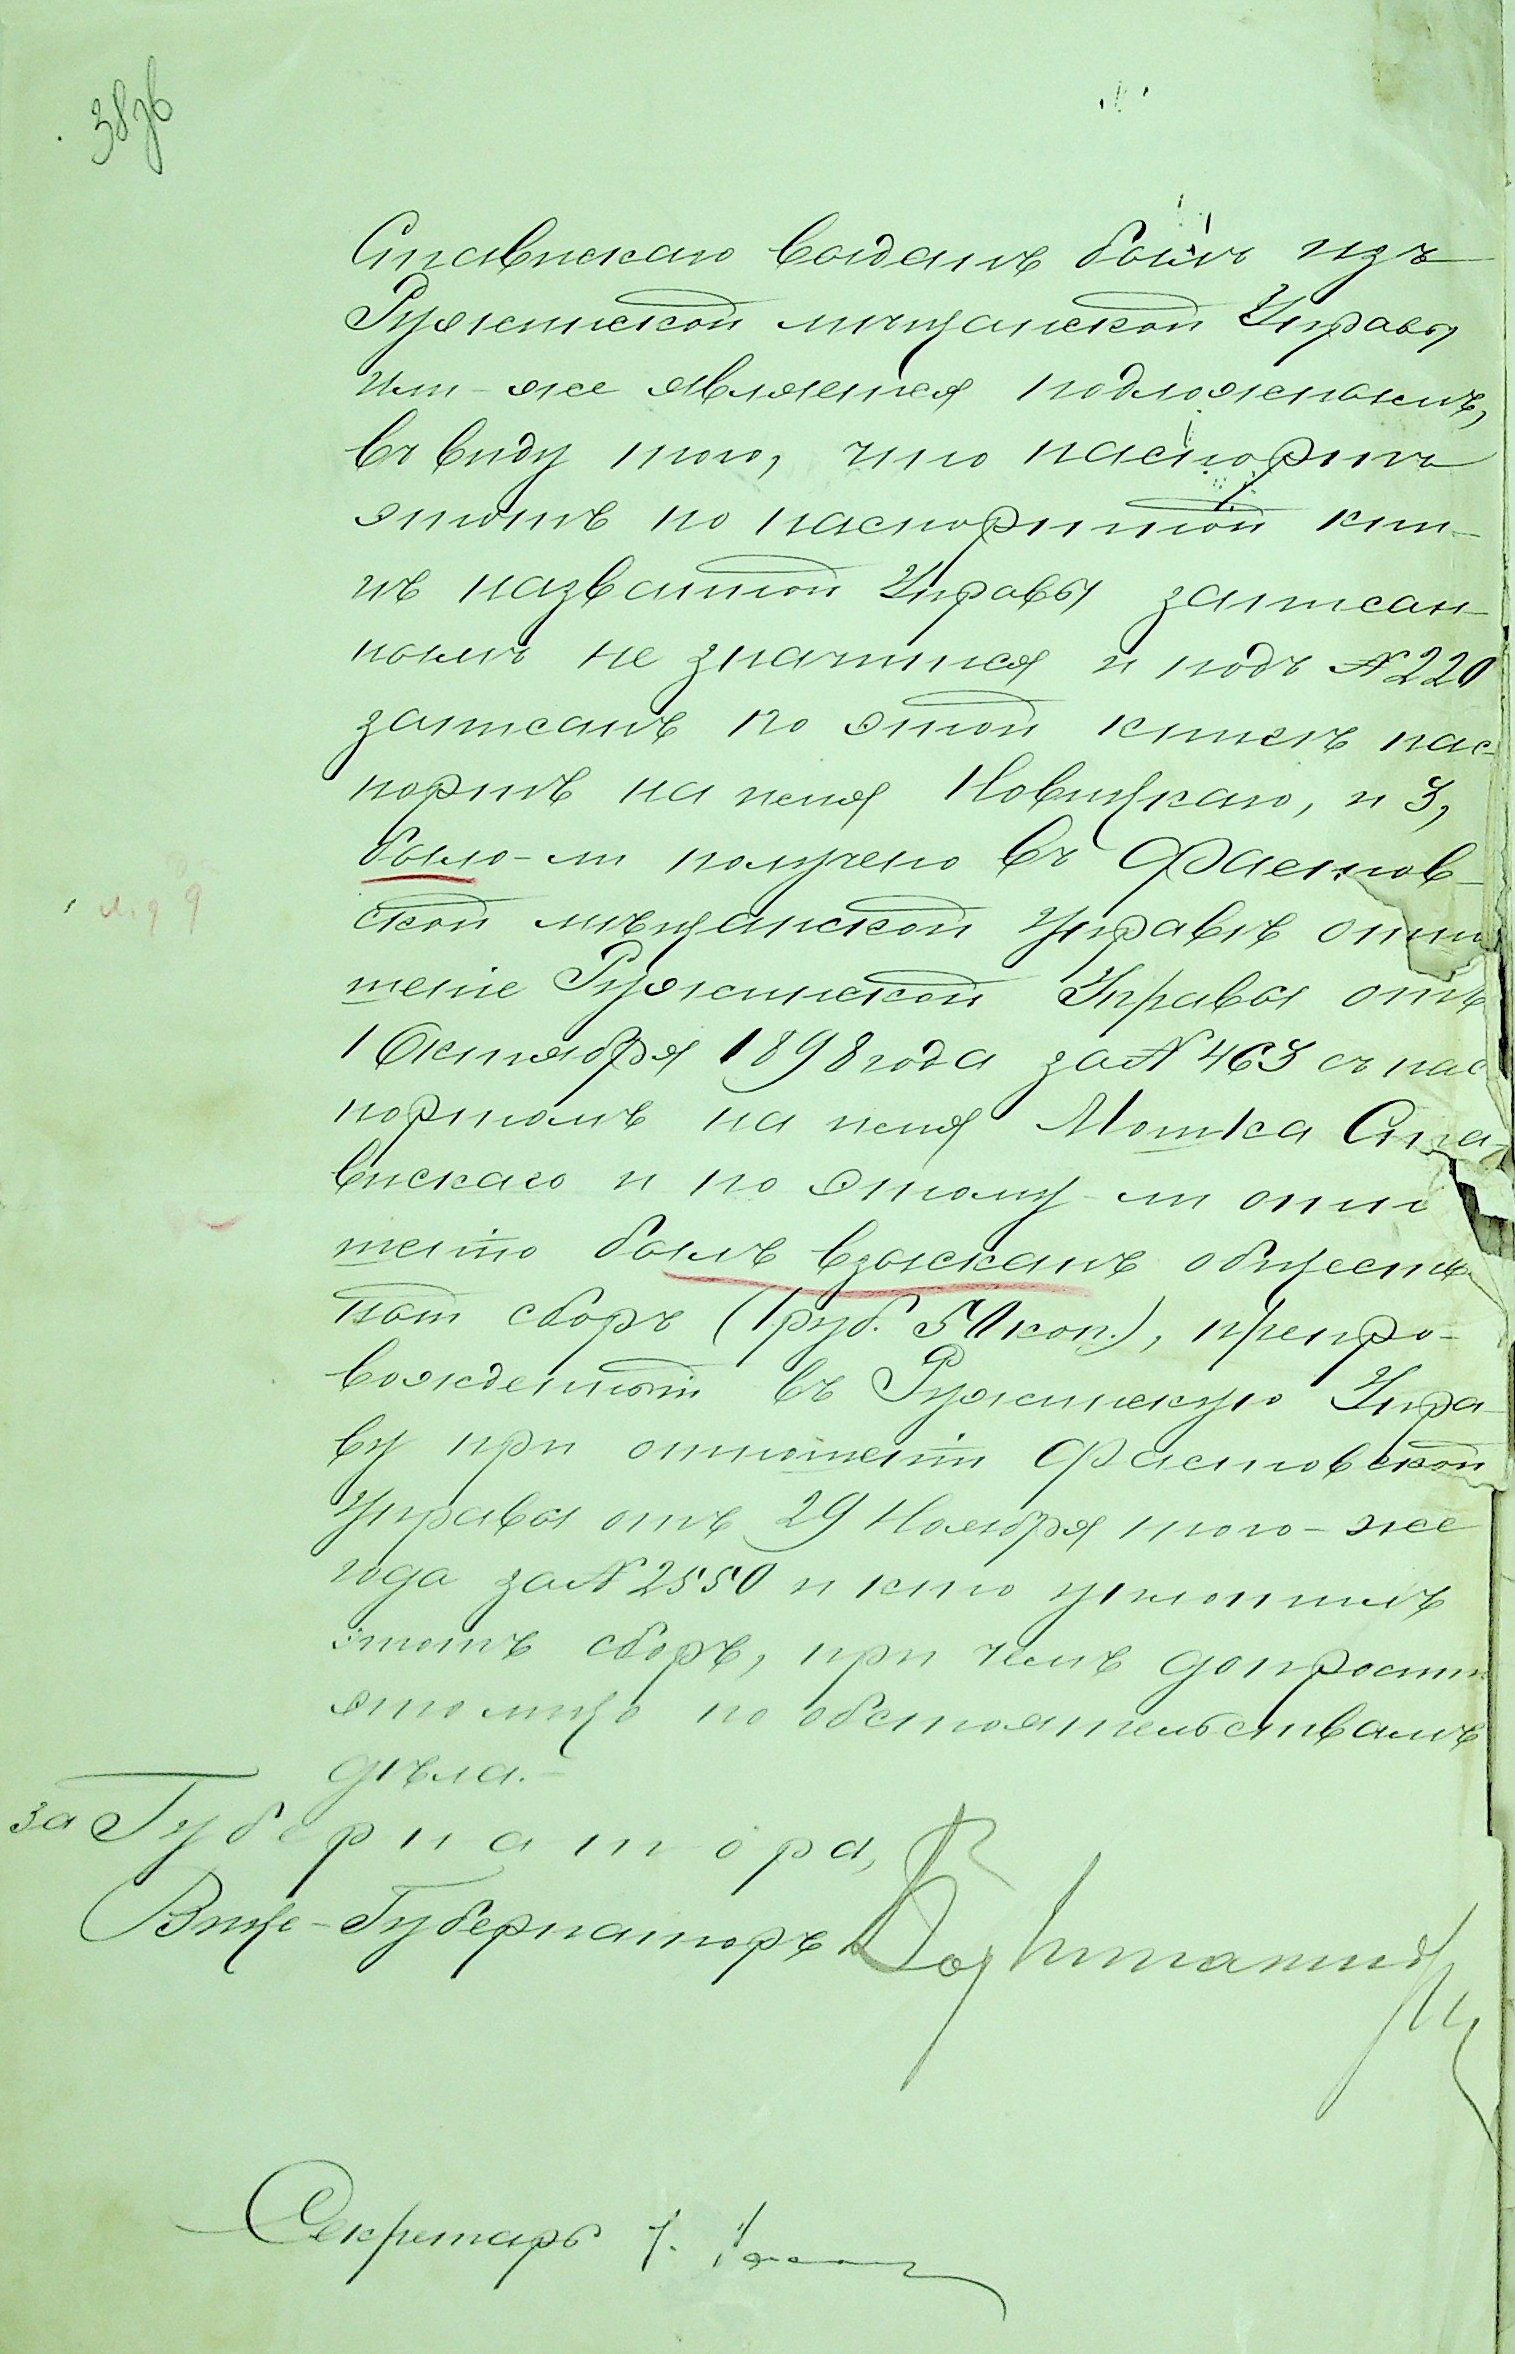 38 зв
Ставискаго выданъ былъ изъ
Ружинской мѣщанской Управы
или-же является подложнымъ,
въ виду того, что паспортъ
этотъ по паспортной кни-
гѣ названной Управы записан-
нымъ не значится и подъ №220
записанъ по этой книгѣ пас-
портъ на имя Новицкаго, и 3,
было-ли получено въ Фастов-
ской мѣщанской Управѣ отно
шеніе Ружинской Управы отъ
1 Октября 1898 года за № 463 съ пас
портомъ на имя Мошка Ста-
вискаго и по этому-ли отно
шенію былъ взысканъ обществ
ный сборъ (1 руб. 50 коп.), препро-
вожденный въ Ружинскую Упра-
ву при отношеніи Фастовской
Управы отъ 29 Ноября того-же
года за № 2550 и кто уплотилъ
этотъ сборъ, при чемъ допросить
это лицо по обстоятельствамъ
дѣла.-
за Губернатора,
Вице-Губернаторъ
Секретарь